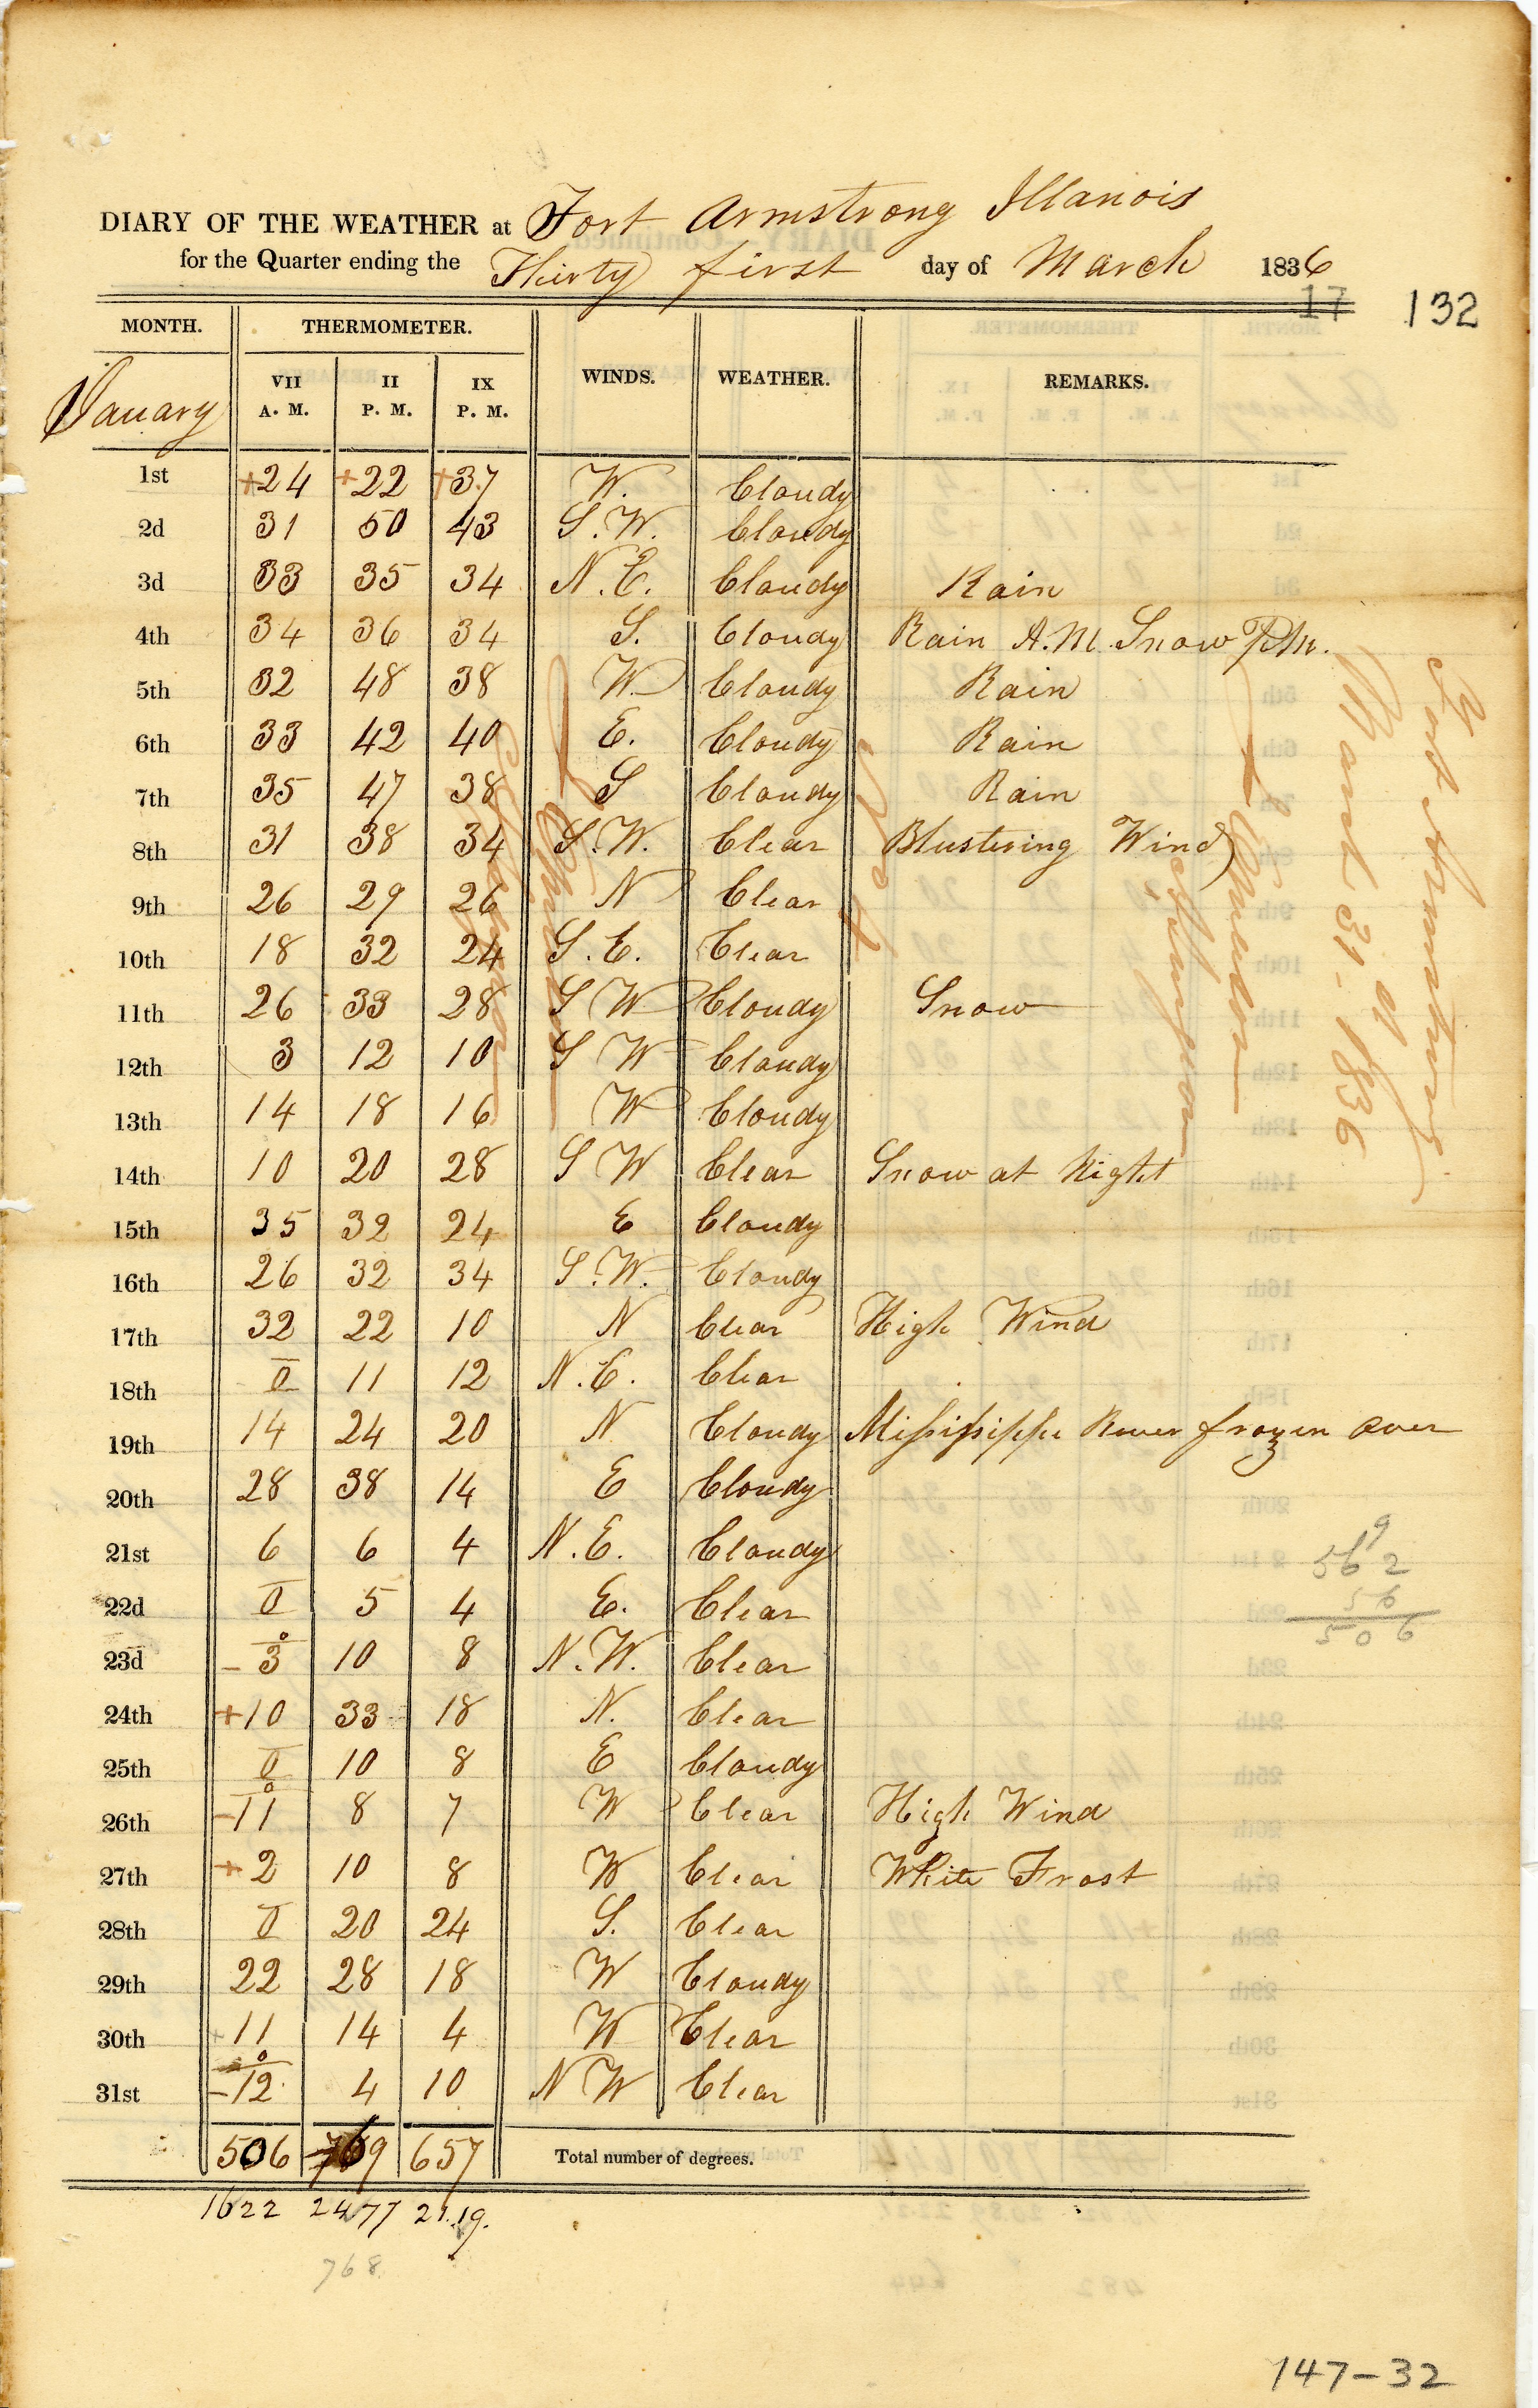 DIARY OF THE WEATHER at Fort Armstrong Illanois
for the Quarter ending the Thirty first day of March 1836
17 132
MONTH. THERMOMETER. WINDS. WEATHER. REMARKS.
January VII A. M. II P. M. IX P. M.
1st +24 +22 +37 W. Cloudy
2d 31 50 43 S.W. Cloudy
3d 33 35 34 N.E. Cloudy Rain
4th 34 36 34 S. Cloudy Rain A.M. Snow P.M.
5th 32 48 38 W. Cloudy Rain
6th 33 42 40 E. Cloudy Rain
7th 35 47 38 S Cloudy Rain
8th 31 38 34 S.W. Clear Blustering Wind
9th 26 29 26 N Clear
10th 18 32 24 S.E. Clear
11th 26 33 28 S W Cloudy Snow
12th 3 12 10 S W Cloudy
13th 14 18 16 W Cloudy
14th 10 20 28 S W Clear Snow at Night
15th 35 32 24 E Cloudy
16th 26 32 34 S.W. Cloudy
17th 32 22 10 N Clear High Wind
18th 0 11 12 N.E. Clear
19th 14 24 20 N Cloudy Missisippi River frozen over
20th 28 38 14 E Cloudy
21st 6 6 4 N.E. Cloudy
22d 0 5 4 E. Clear
23d -3 10 8 N.W. Clear
24th +10 33 18 N. Clear
25th 0 10 8 E Cloudy
26th -11 8 7 W Clear High Wind
27th +2 10 8 W Clear White Frost
28th 0 20 24 S. Clear
29th 22 28 18 W Cloudy
30th 11 14 4 W Clear
31st -12 4 10 N W Clear
506 769 657 Total number of degrees.
1622 2477 2119.
768
Fort Armstrong
March 31st 1836
Surgeon
9
562
56
506
147-32